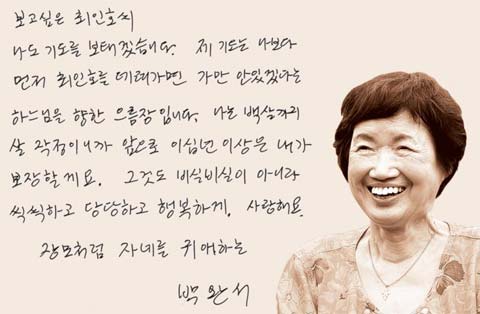 보고싶은 최인호씨
나도 기도를 보태겠습니다. 제 기도는 나보다
먼저 최인호를 데려가면 가만 안있겠다는
하느님을 향한 으름장입니다. 나는 백살까지
살 작정이니까 앞으로 이십년 이상은 내가
보장할께요. 그것도 비실비실이 아니라
씩씩하고 당당하고 행복하게. 사랑해요.
장모처럼 자네를 귀애하는
박완서